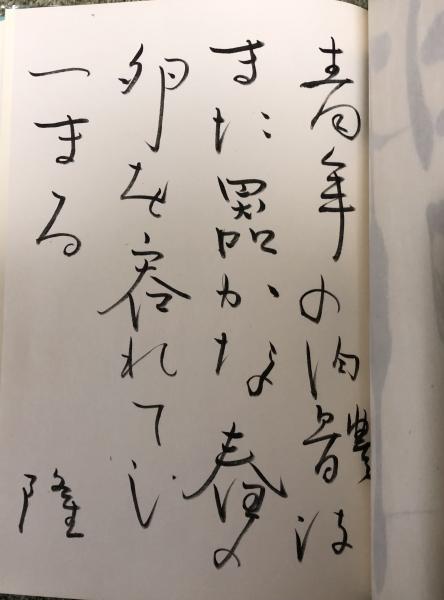 青年の肉體は
まだ器かな春の
卵を容れてし
づまる
隆